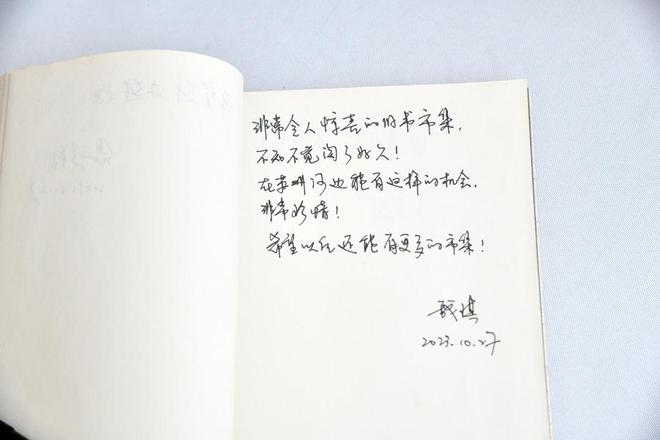 非常令人惊喜的旧书市集,
不知不觉淘了好久!
在苏州河也能有这样的机会,
非常珍惜!
希望以后还能有更多的市集!
琪
2023.10.27